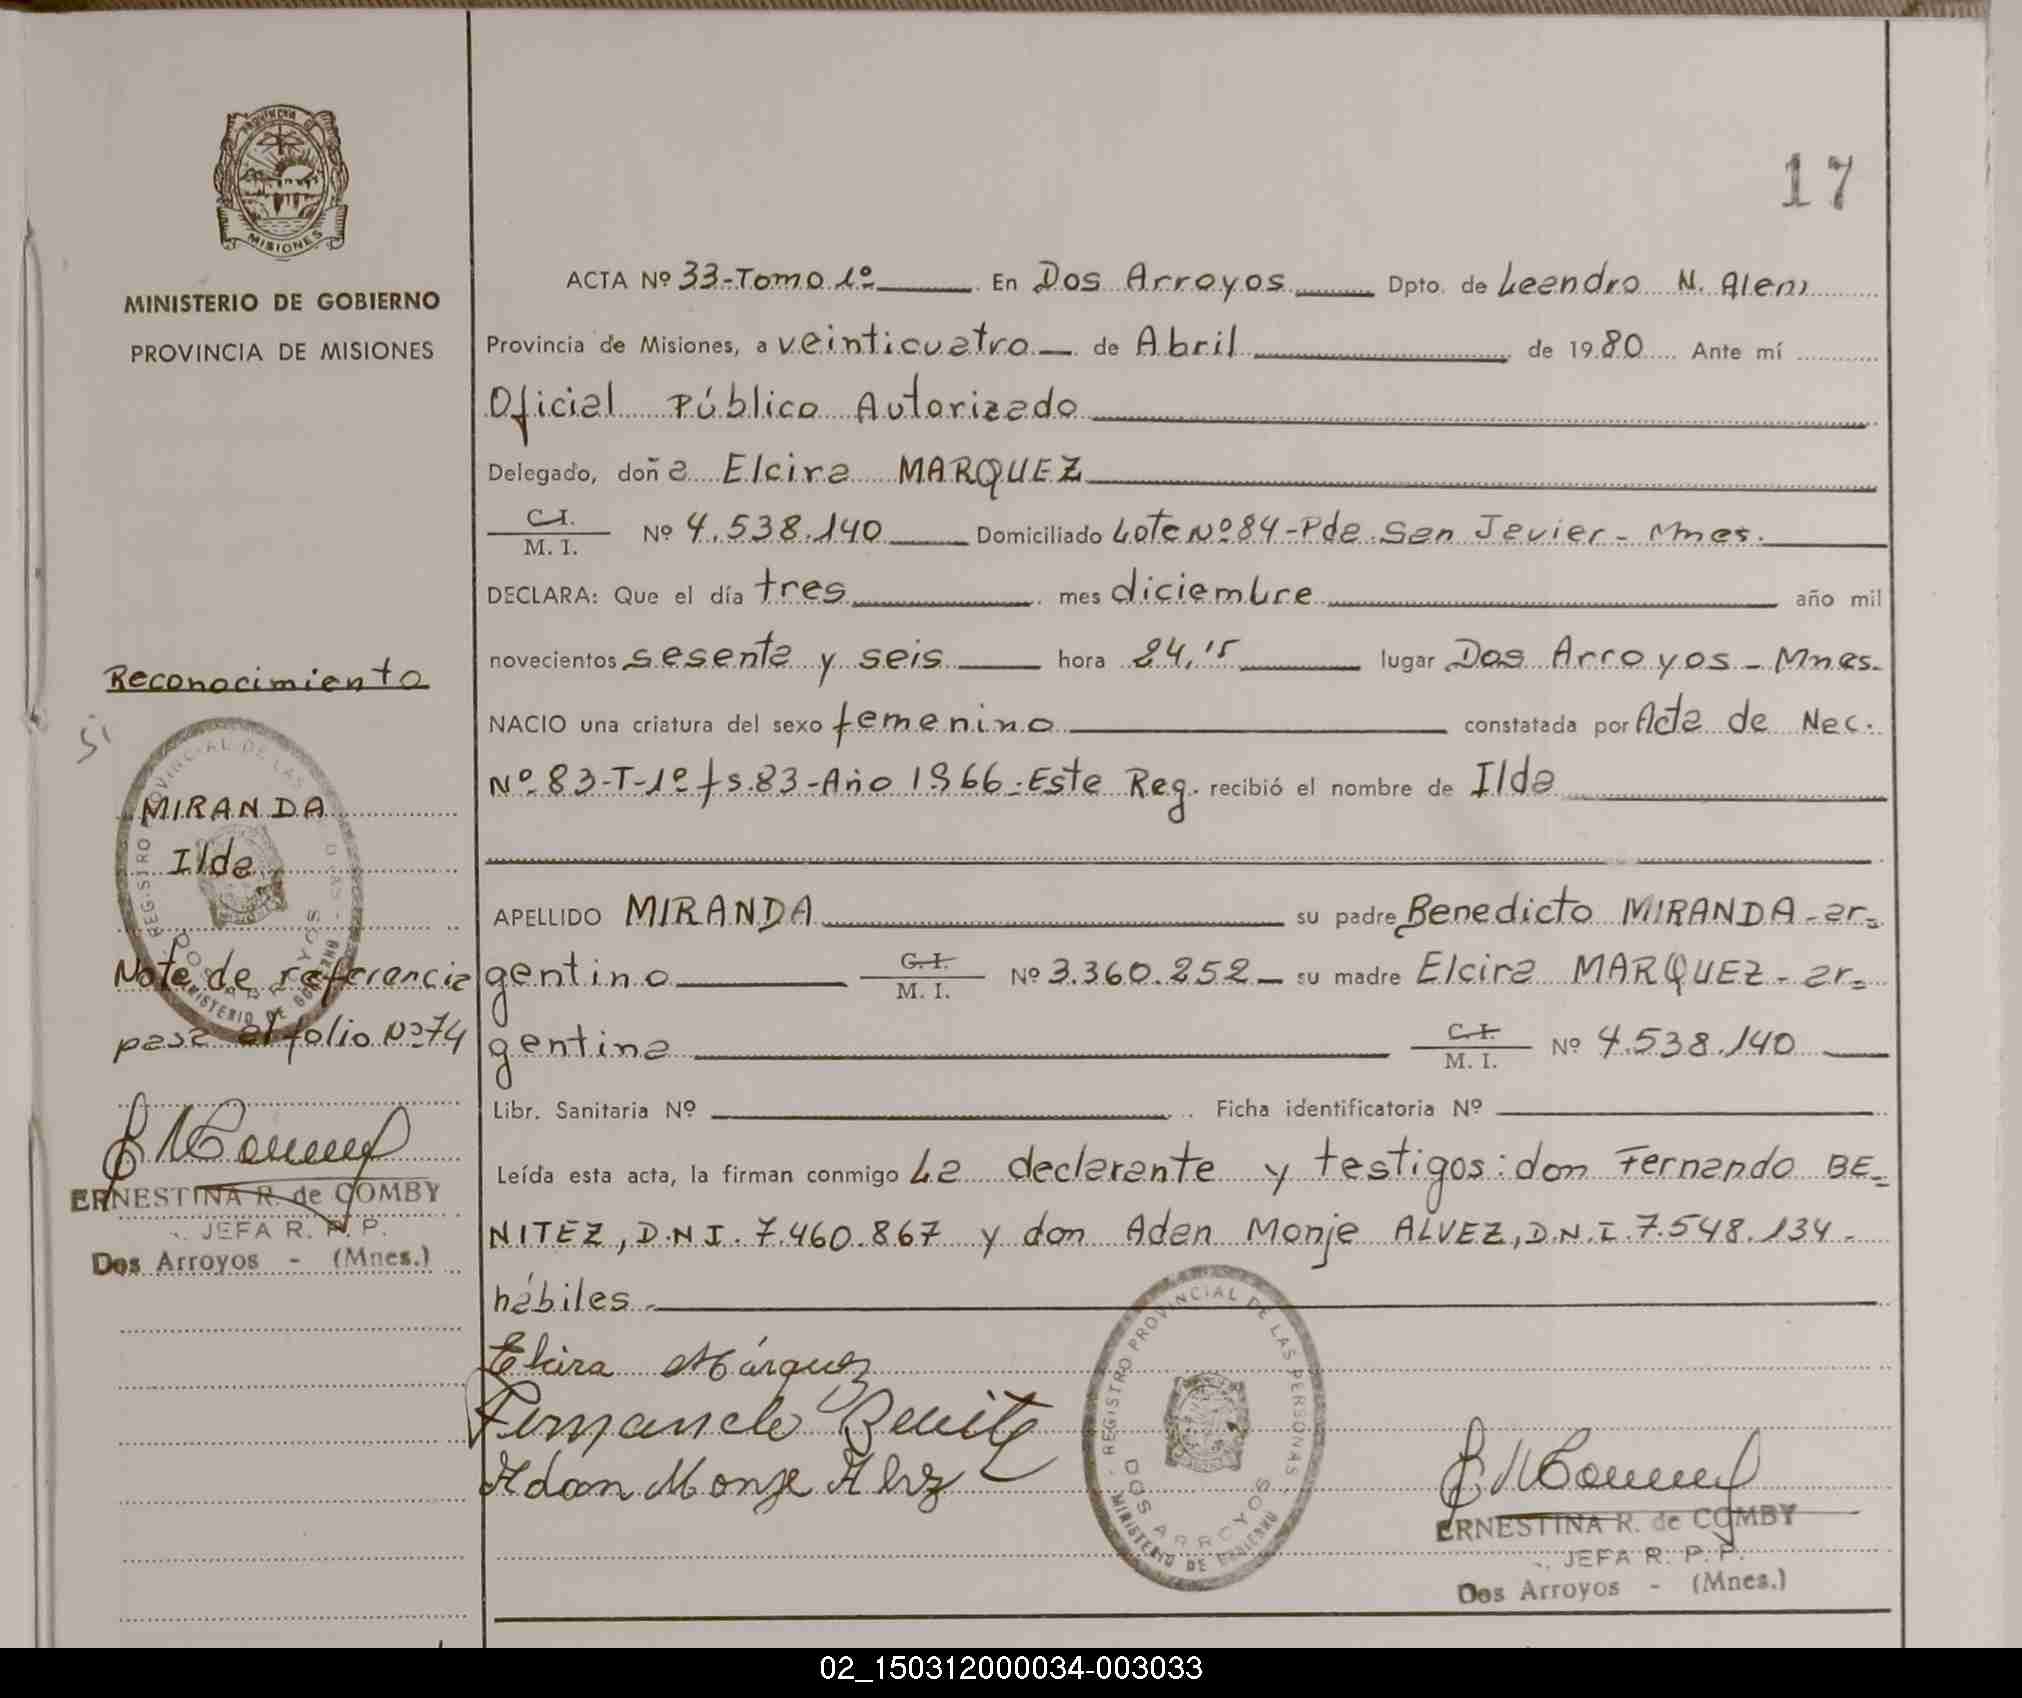 PROVINCIA DE
MISIONES
MINISTERIO DE GOBIERNO
PROVINCIA DE MISIONES
Reconocimiento
Si
MIRANDA
Ilda
Nota de referencia
pasa al folio Nº 74
ERNESTINA R. de COMBY
JEFA R. P. P.
Dos Arroyos - (Mnes.)
17
ACTA Nº 33-Tomo 1º En Dos Arroyos Dpto. de Leandro N. Alem
Provincia de Misiones, a veinticuatro de Abril de 1980 Ante mí
Oficial Público Autorizado
Delegado, doña Elcira MARQUEZ
C.I. / M. I. Nº 4.538.140 Domiciliado Lote Nº 84-Pda. San Javier - Mnes.
DECLARA: Que el día tres mes diciembre año mil
novecientos sesenta y seis hora 24,15 lugar Dos Arroyos - Mnes.
NACIO una criatura del sexo femenino constatada por Acta de Nac.
Nº 83-T-1º fs. 83-Año 1966.-Este Reg. recibió el nombre de Ilda
APELLIDO MIRANDA su padre Benedicto MIRANDA-ar=
gentino C.I. / M. I. Nº 3.360.252 su madre Elcira MARQUEZ-ar=
gentina C.I. / M. I. Nº 4.538.140
Libr. Sanitaria Nº Ficha identificatoria Nº
Leída esta acta, la firman conmigo La declarante y testigos: don Fernando BE=
NITEZ, D.N.I. 7.460.867 y don Adan Monje ALVEZ, D.N.I. 7.548.134.
hábiles.
Elcira Márquez
Fernando Benitez
Adán Monje Alvez
REGISTRO PROVINCIAL DE LAS PERSONAS
DOS ARROYOS
MINISTERIO DE GOBIERNO
ERNESTINA R. de COMBY
JEFA R. P. P.
Dos Arroyos - (Mnes.)
02_150312000034-003033